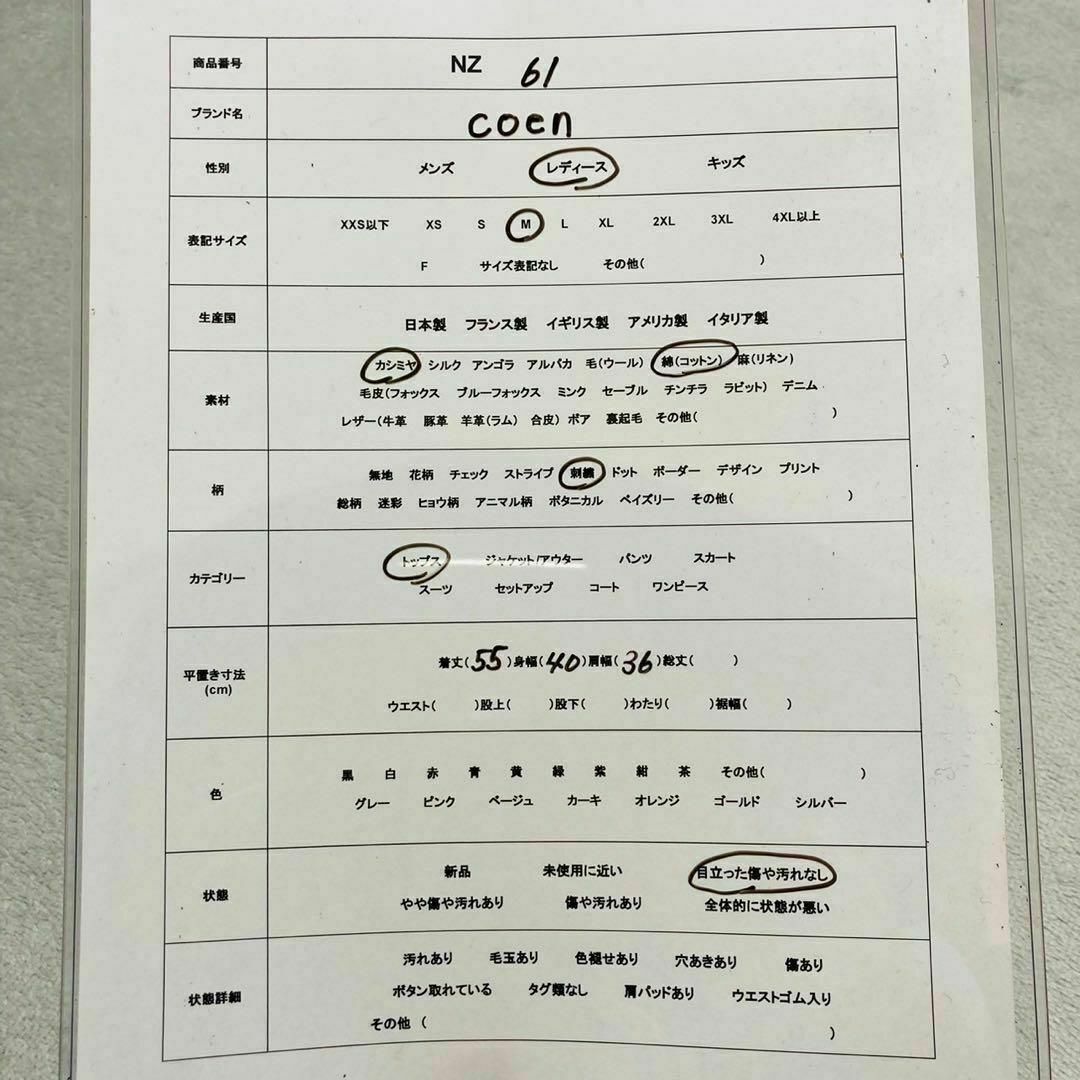 商品番号 NZ 61
ブランド名 coen
性別 メンズ レディース キッズ
XXS以下 XS S M L XL 2XL 3XL 4XL以上
表記サイズ
F サイズ表記なし その他( )
生産国 日本製 フランス製 イギリス製 アメリカ製 イタリア製
カシミヤ シルク アンゴラ アルパカ 毛(ウール) 綿(コットン) 麻(リネン)
素材 毛皮(フォックス ブルーフォックス ミンク セーブル チンチラ ラビット) デニム
レザー(牛革 豚革 羊革(ラム) 合皮) ボア 裏起毛 その他( )
無地 花柄 チェック ストライプ 刺繍 ドット ボーダー デザイン プリント
柄
総柄 迷彩 ヒョウ柄 アニマル柄 ボタニカル ペイズリー その他( )
トップス ジャケット/アウター パンツ スカート
カテゴリー
スーツ セットアップ コート ワンピース
着丈(55)身幅(40)肩幅(36)総丈( )
平置き寸法
(cm)
ウエスト( )股上( )股下( )わたり( )裾幅( )
黒 白 赤 青 黄 緑 紫 紺 茶 その他( )
色
グレー ピンク ベージュ カーキ オレンジ ゴールド シルバー
新品 未使用に近い 目立った傷や汚れなし
状態
やや傷や汚れあり 傷や汚れあり 全体的に状態が悪い
汚れあり 毛玉あり 色褪せあり 穴あきあり 傷あり
状態詳細 ボタン取れている タグ類なし 肩パッドあり ウエストゴム入り
その他 ( )